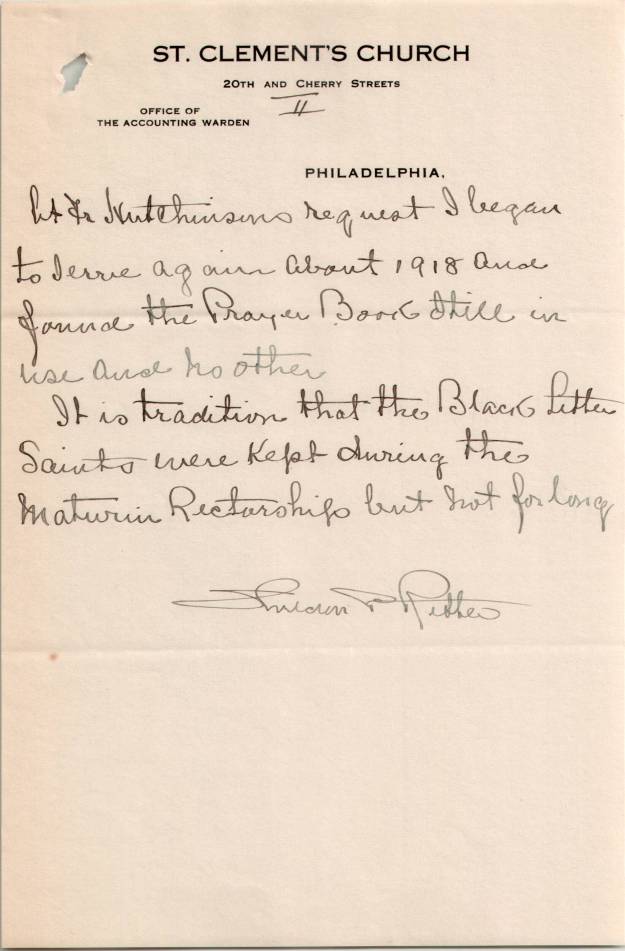 ST. CLEMENT'S CHURCH
20TH AND CHERRY STREETS
II
OFFICE OF
THE ACCOUNTING WARDEN
PHILADELPHIA,
At Fr Hutchinsons request I began
to serve again about 1918 and
found the Prayer Book still in
use and no other
It is tradition that the Black Letter
Saints were kept during the
Maturin Rectorship but not for long
Ritter